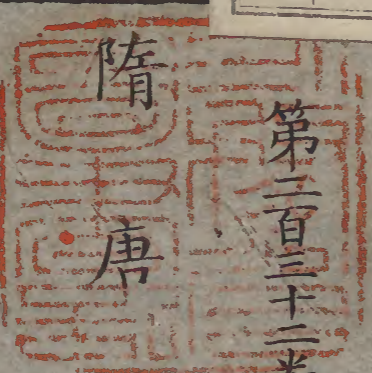 第二百三十二卷
隋唐